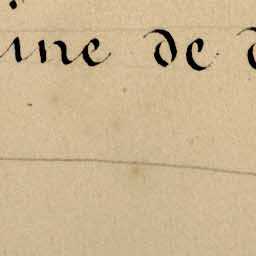 ine de